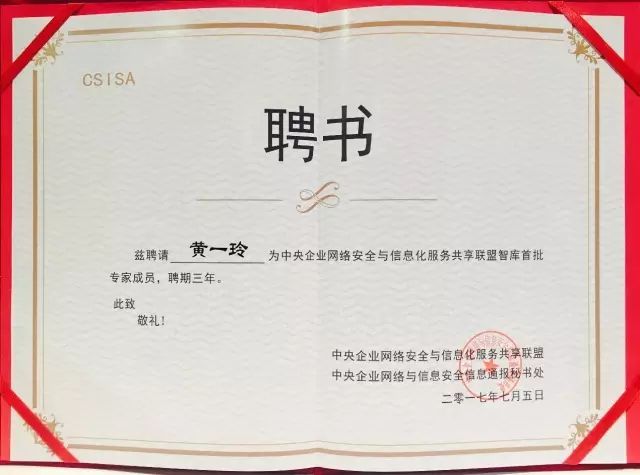 CSISA
聘书
兹聘请 黄一玲 为中央企业网络安全与信息化服务共享联盟智库首批
专家成员，聘期三年。
此致
敬礼！
中央企业网络安全与信息化服务共享联盟
中央企业网络与信息安全信息通报秘书处
二零一七年七月五日